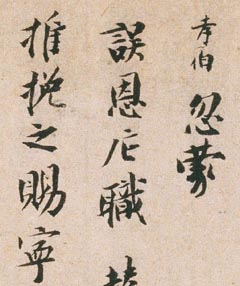 孝伯忽蒙
誤恩庀職
推挽之賜寧